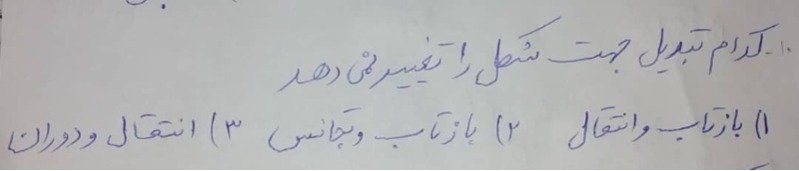 ۱۰- کدام تبدیل جهت شکل را تغییر نمی دهد
۱) بازتاب و انتقال ۲) بازتاب و تجانس ۳) انتقال و دوران